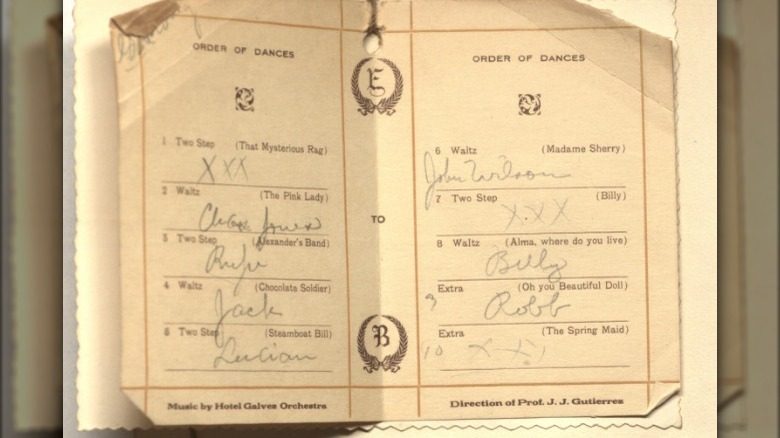 ORDER OF DANCES
1 Two Step (That Mysterious Rag)
XXX
2 Waltz (The Pink Lady)
Jones
3 Two Step (Alexander's Band)
Rufe
4 Waltz (Chocolate Soldier)
Jack
5 Two Step (Steamboat Bill)
Lucian
Music by Hotel Galvez Orchestra
E
TO
B
ORDER OF DANCES
6 Waltz (Madame Sherry)
John Wilson
7 Two Step (Billy)
XXX
8 Waltz (Alma, where do you live)
Billy
Extra (Oh you Beautiful Doll)
9 Robb
Extra (The Spring Maid)
10 X X
Direction of Prof. J. J. Gutierrez